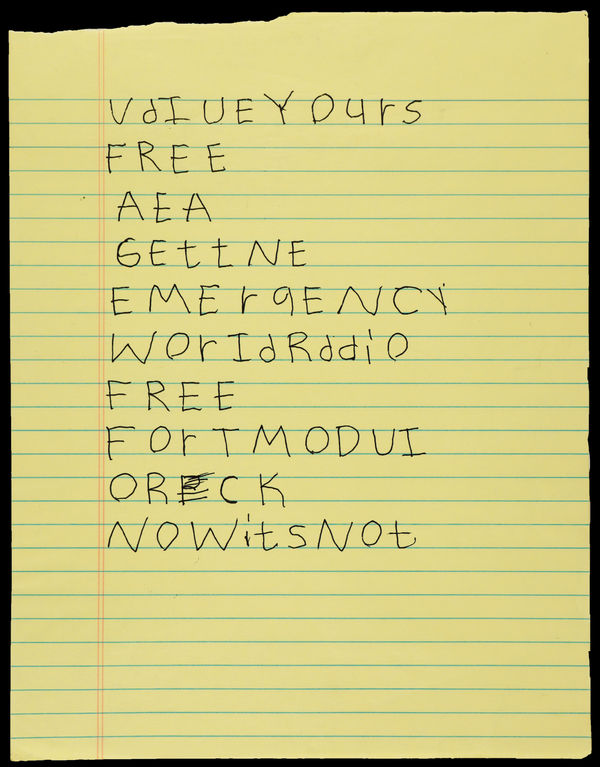 VdIUEYOUrS
FREE
AEA
GEttNE
EMErgENCY
WOrIdRddiO
FREE
FOrTMODUI
ORECK
NOWitsNOt